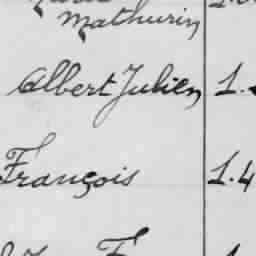 Mathurin
Albert Julien 1.
François 1.4